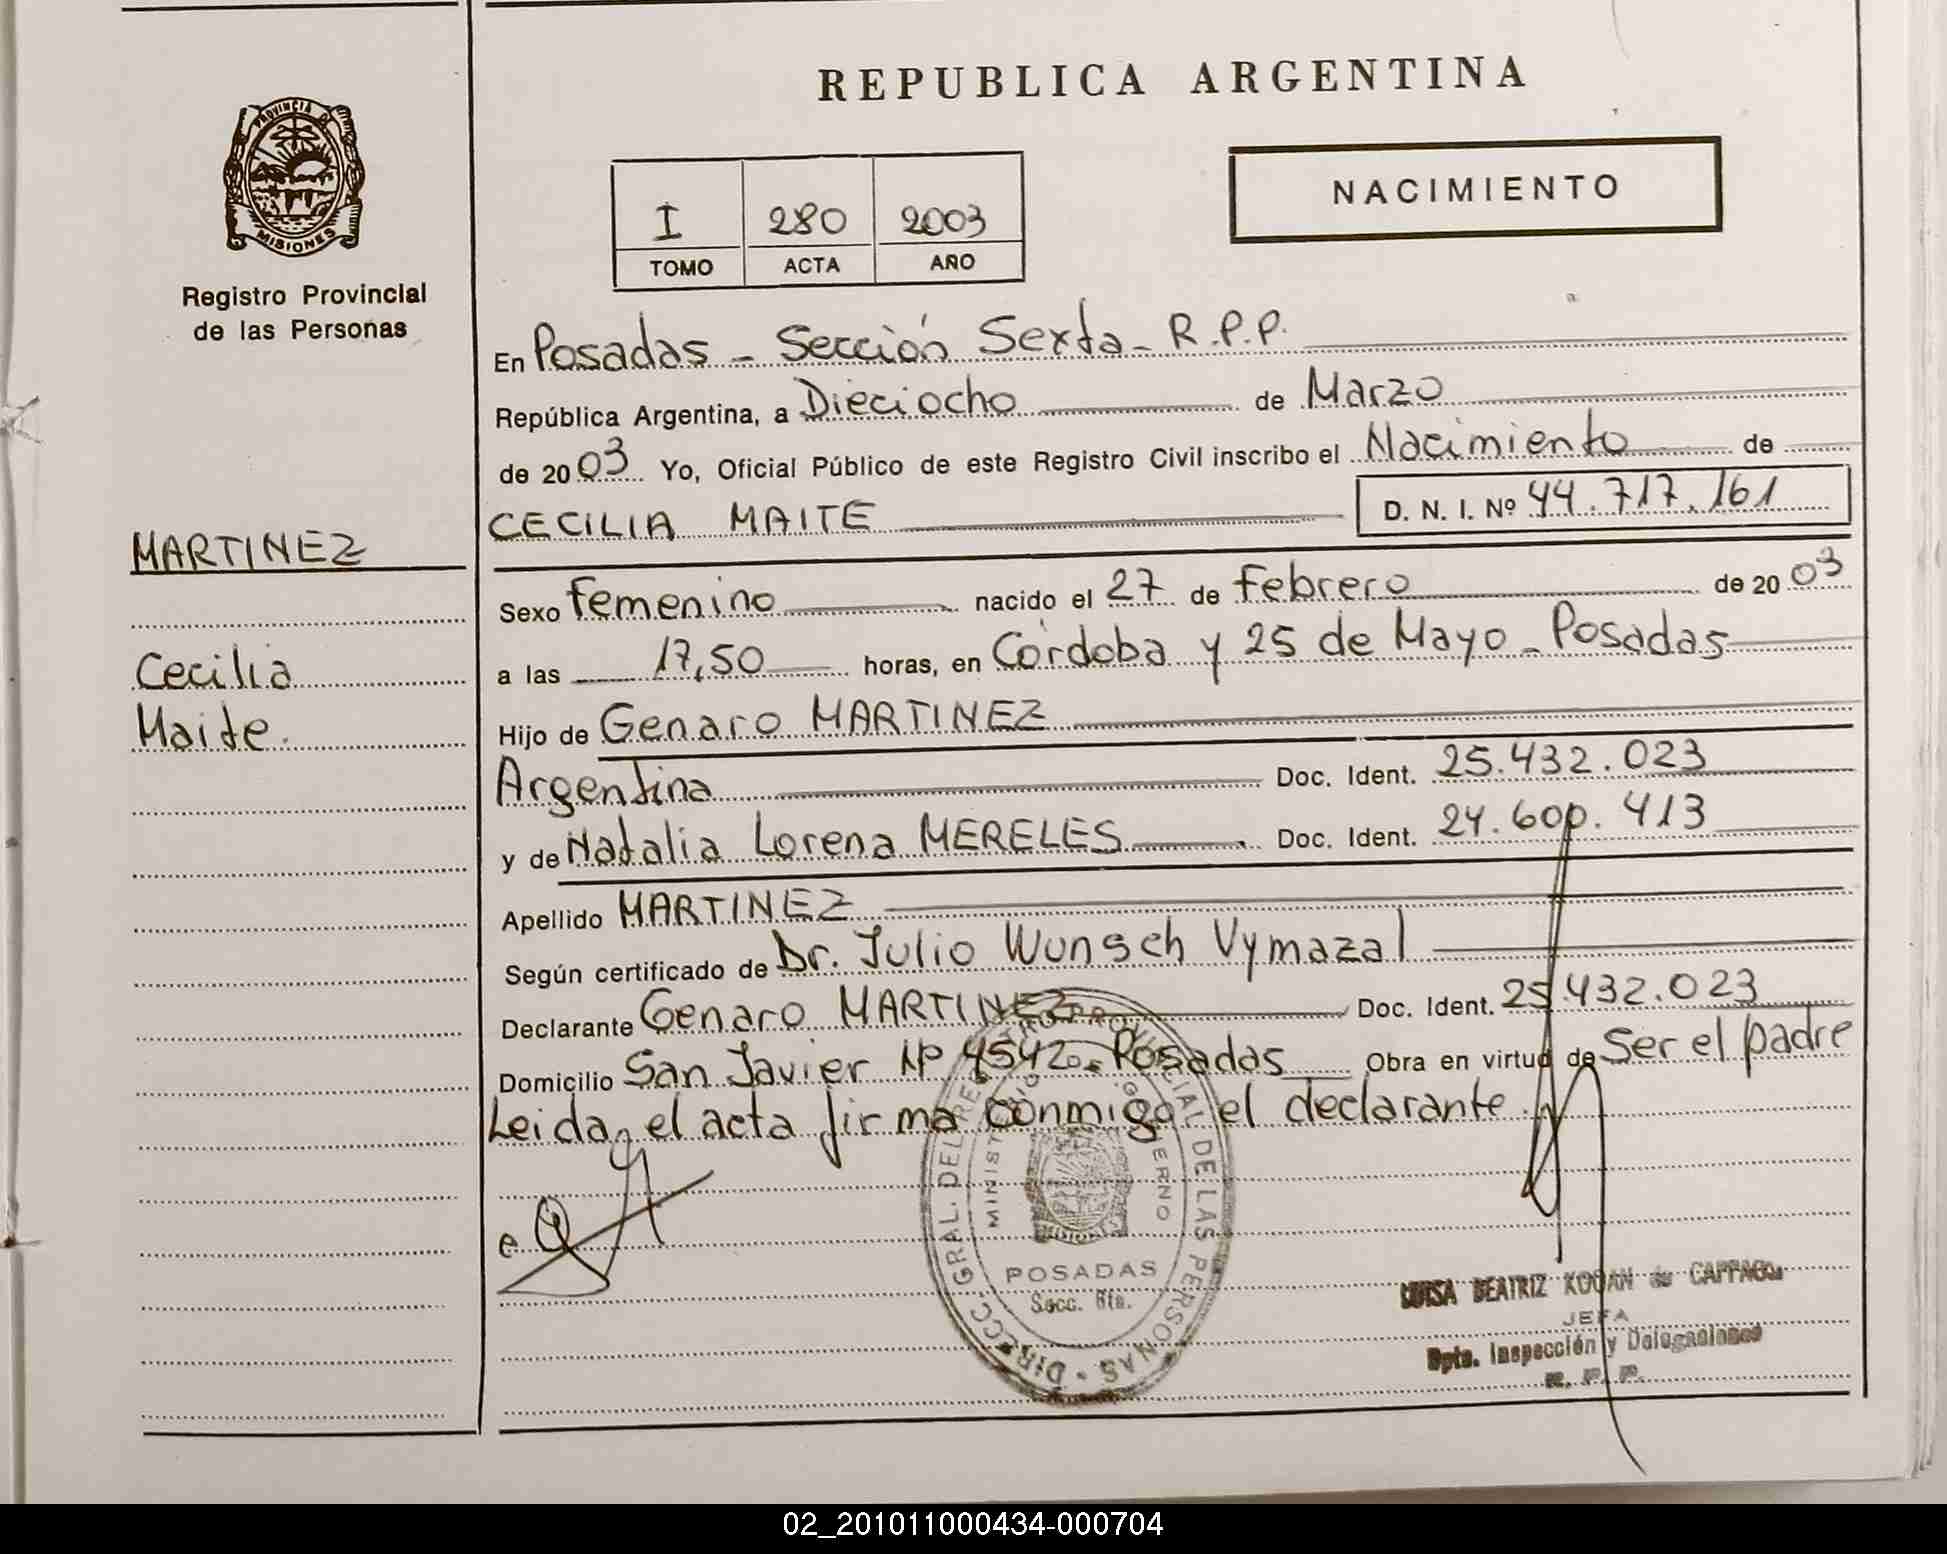 REPUBLICA ARGENTINA
PROVINCIA DE
MISIONES
Registro Provincial
de las Personas
I 280 2003
TOMO ACTA AÑO
NACIMIENTO
En Posadas - Sección Sexta - R.P.P.
República Argentina, a Dieciocho de Marzo
de 2003 Yo, Oficial Público de este Registro Civil inscribo el Nacimiento de
CECILIA MAITE D. N. I. Nº 44.717.161
MARTINEZ
Cecilia
Maite.
Sexo Femenino nacido el 27 de Febrero de 2003
a las 17,50 horas, en Córdoba y 25 de Mayo - Posadas
Hijo de Genaro MARTINEZ
Argentina Doc. Ident. 25.432.023
y de Natalia Lorena MERELES Doc. Ident. 24.600.413
Apellido MARTINEZ
Según certificado de Dr. Julio Wunsch Vymazal
Declarante Genaro MARTINEZ Doc. Ident. 25.432.023
Domicilio San Javier Nº 4542 - Posadas Obra en virtud de Ser el padre
Leida el acta firma conmigo el declarante
DIRECC. GRAL. DEL REGISTRO PROVINCIAL DE LAS PERSONAS
MINISTERIO GOBIERNO
POSADAS
Secc. 6ta.
LUISA BEATRIZ KOGAN de
JEFA
Dpto. Inspección y Delegaciones
R. P. P.
02_201011000434-000704